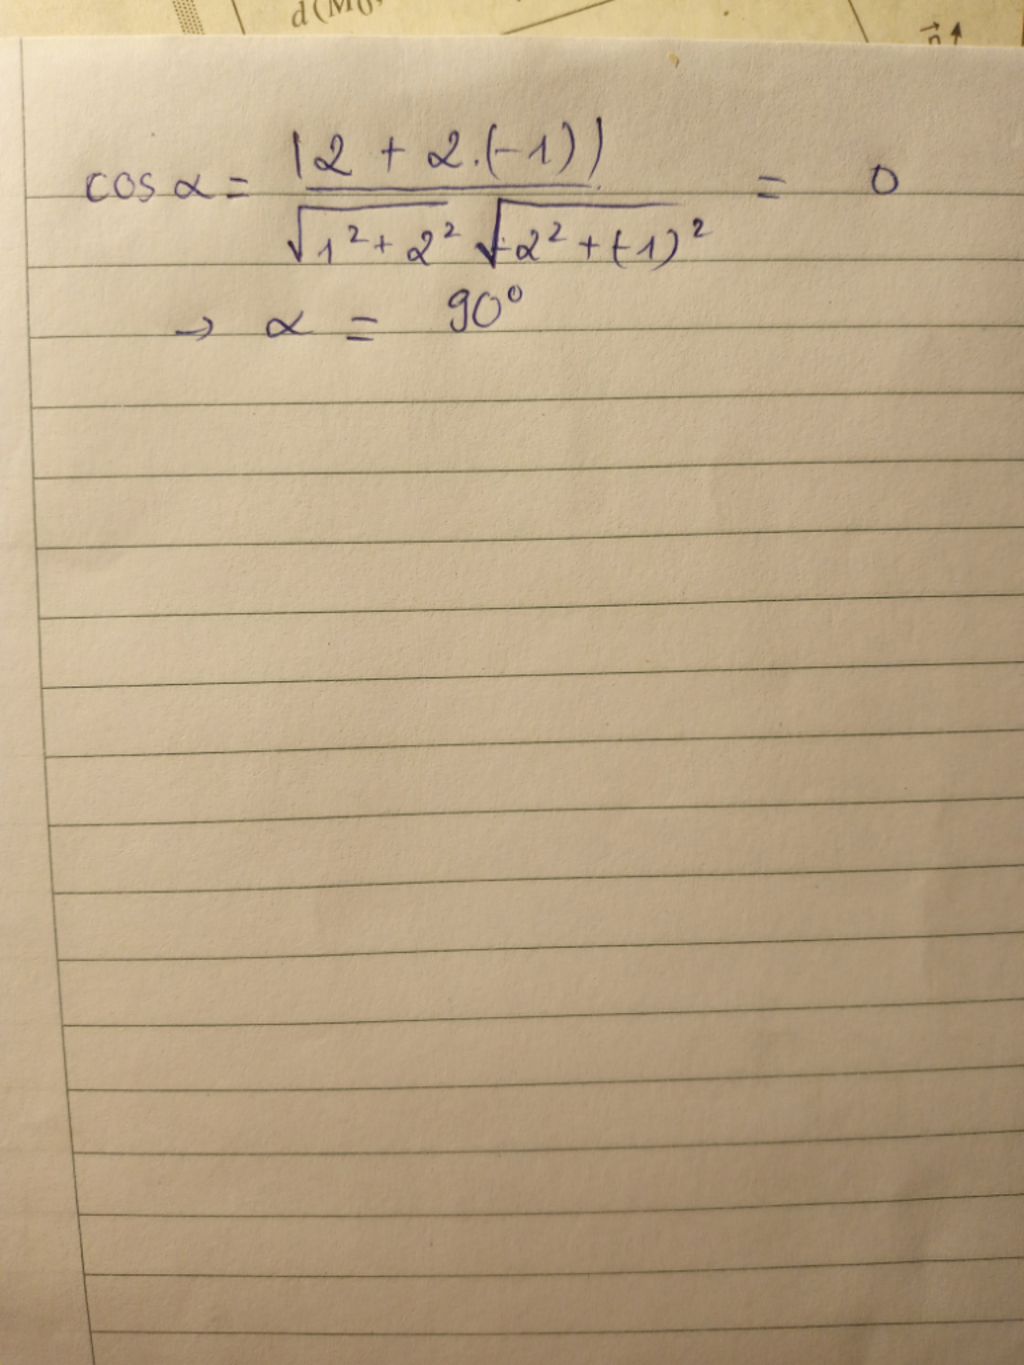 d(M₀,
n
cos α = |2 + 2.(-1)| / √1² + 2² √2² + (-1)² = 0
→ α = 90°